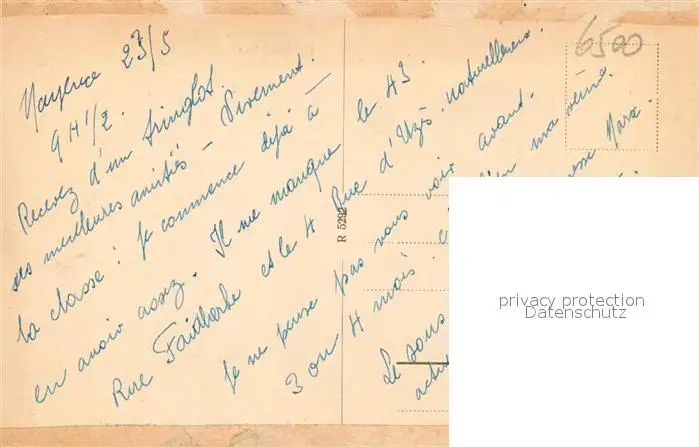 6500
Mayence 23/5
9 H 1/2.
Recevez d'un tringlot
ses meilleures amitiés — Vivement
la classe ! je commence déjà à
en avoir assez. Il me manque le 43.
Rue Faidherbe et le 4 Rue d'Uzès. naturellement.
Je ne pense pas vous voir avant.
3 ou 4 mois. ma veine.
Le sous
R 5292
privacy protection
Datenschutz